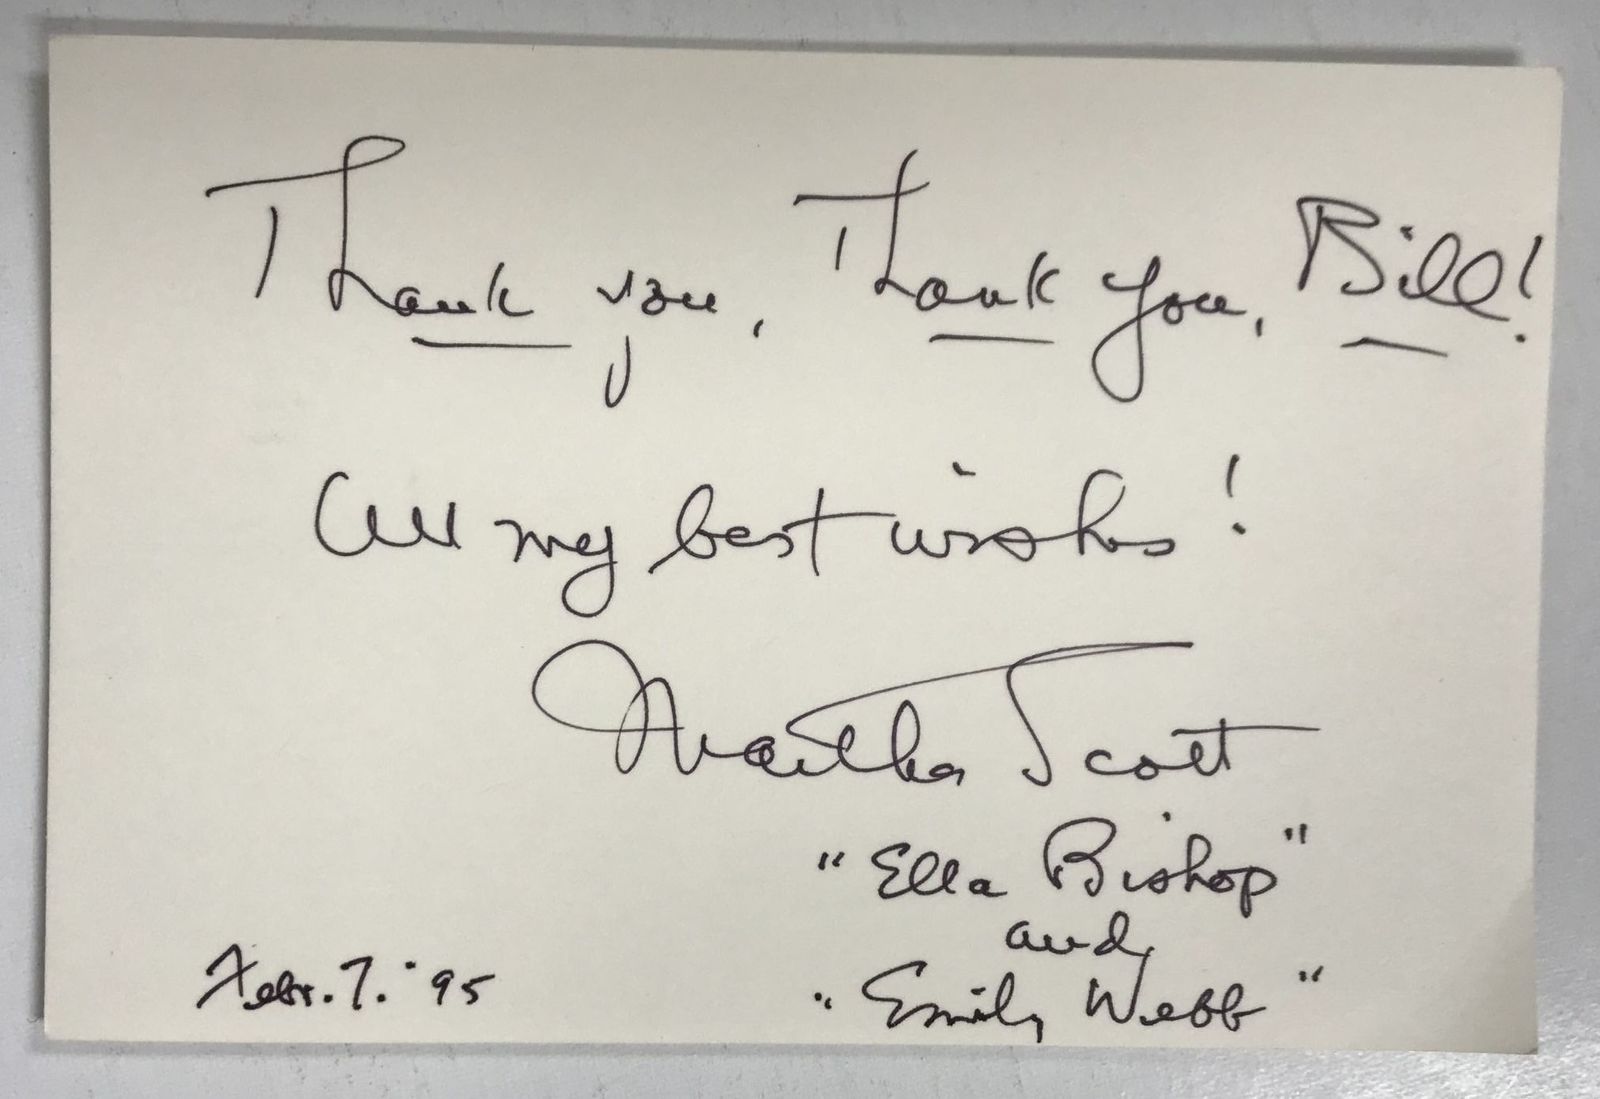 Thank you, Thank you, Bill!
All my best wishes!
Martha Scott
"Ella Bishop"
and
"Emily Webb"
Febr. 7. '95